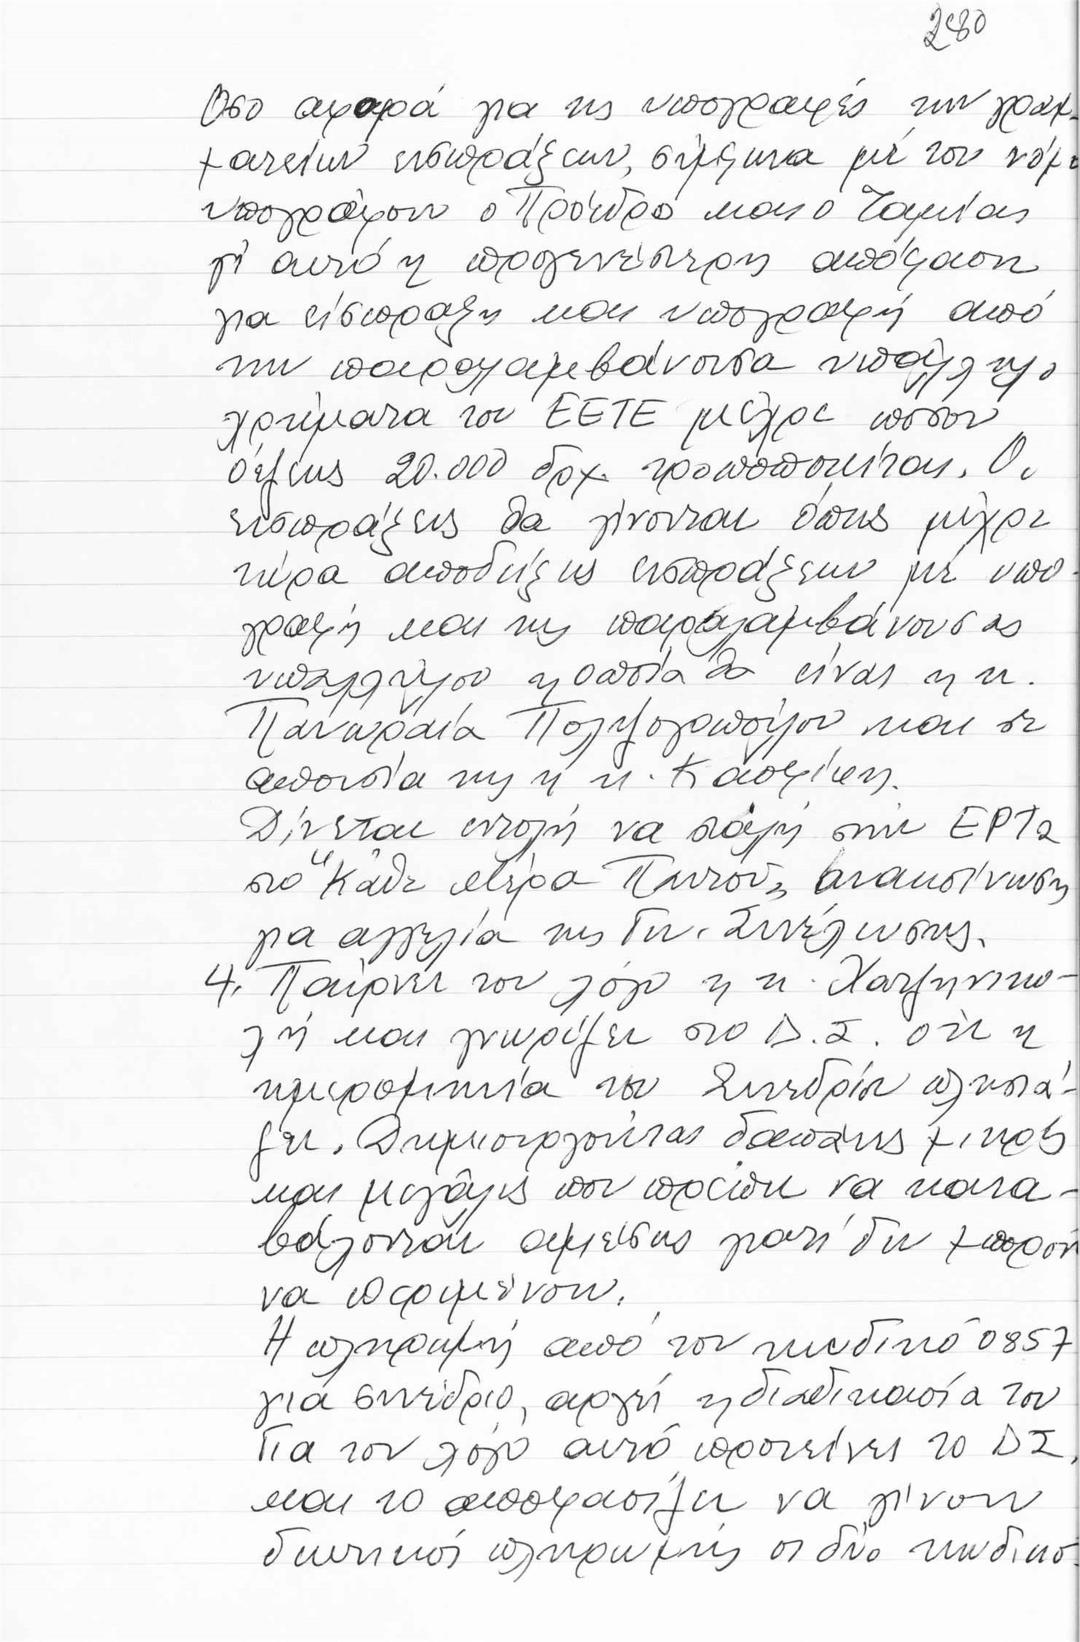 280
Οσο αφορά για τις υπογραφές των γραμ-
ματείων εισπράξεων, σύμφωνα με τον νόμο
υπογράφουν ο Πρόεδρο και ο Ταμίας
γι' αυτό η προγενέστερη απόφαση
για είσπραξη και υπογραφή από
την παραλαμβάνουσα υπάλληλο
χρήματα του ΕΕΤΕ μέχρι ποσού
δρχ. 20.000 δρχ. τροποποιείται. Οι
εισπράξεις θα γίνονται όπως μέχρι
τώρα αποδείξεις εισπράξεων με υπο-
γραφή και της παραλαμβάνουσας
υπαλλήλου η οποία θα είναι η κ.
Πανωραία Πολυζογοπούλου και σε
απουσία της η κ.
Δίνεται εντολή να σταλή στην ΕΡΤ2
στο "Κάθε Μέρα Παντού", ανακοίνωση
για αγγελία της Γεν. Συνέλευσης.
4. Παίρνει τον λόγο η κ. Χατζηνικο-
λή και γνωρίζει στο Δ.Σ. ότι η
ημερομηνία του Συνεδρίου πλησιά-
ζει. Δημιουργούνται δαπάνες μικρές
και μεγάλες που πρέπει να κατα-
βάλονται αμέσως γιατί δεν μπορούν
να περιμένουν.
Η πληρωμή από τον κωδικό 0857
γιά συνέδριο, αργεί η διαδικασία του
Για τον λόγο αυτό προτείνει το ΔΣ.
και το αποφασίζει να γίνουν
πληρωμής οι δύο κωδικοί